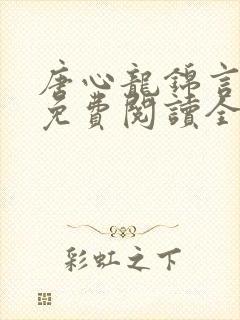 唐心龍錦言
免費閱讀全
彩虹之下